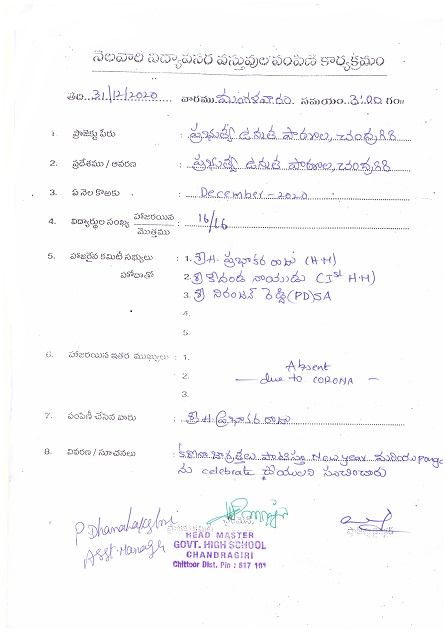 నెలవారి విద్యావసర వస్తువుల పంపిణి కార్యక్రమం
తేది..31/12/2020..... వారము మంగళవారం. సమయం..3:00 గం॥
1. ప్రాజెక్టు పేరు : ప్రభుత్వ ఉన్నత పాఠశాల, చంద్రగిరి
2. ప్రదేశము / ఆవరణ : ప్రభుత్వ ఉన్నత పాఠశాల, చంద్రగిరి
3. ఏ నెల కొఱకు : December - 2020
4. విద్యార్థుల సంఖ్య హాజరయిన / మొత్తము : 16/16
5. హాజరైన కమిటీ సభ్యులు : 1. శ్రీ H. ప్రభాకర రాజు (H.M)
హోదాతో 2. శ్రీ కోదండ నాయుడు (Ist H.M)
3. శ్రీ నిరంజన్ రెడ్డి (PD) SA
4.
5.
6. హాజరయిన ఇతర ముఖ్యులు : 1.
2. Absent
due to CORONA
3.
7. పంపిణీ చేసిన వారు : శ్రీ H. ప్రభాకర రాజు
8. వివరణ / సూచనలు : కరోనా జాగ్రత్తలు పాటిస్తూ New year మరియు
ను celebrate చేయాలని సూచించారు
Asst. Manager
HEAD MASTER
GOVT. HIGH SCHOOL
CHANDRAGIRI
Chittoor Dist. Pin : 517 101